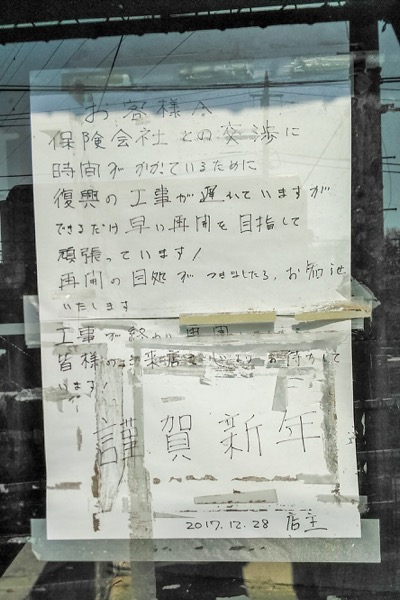 お客様へ
保険会社との交渉に
時間がかかているために
復興の工事が遅れていますが
できるだけ早い再開を目指して
頑張っています!
再開の目処がつきましたら、お知らせ
いたします
工事が終わり再開
皆様のご来店を心よりお待ちして
います!
謹賀新年
2017.12.28 店主